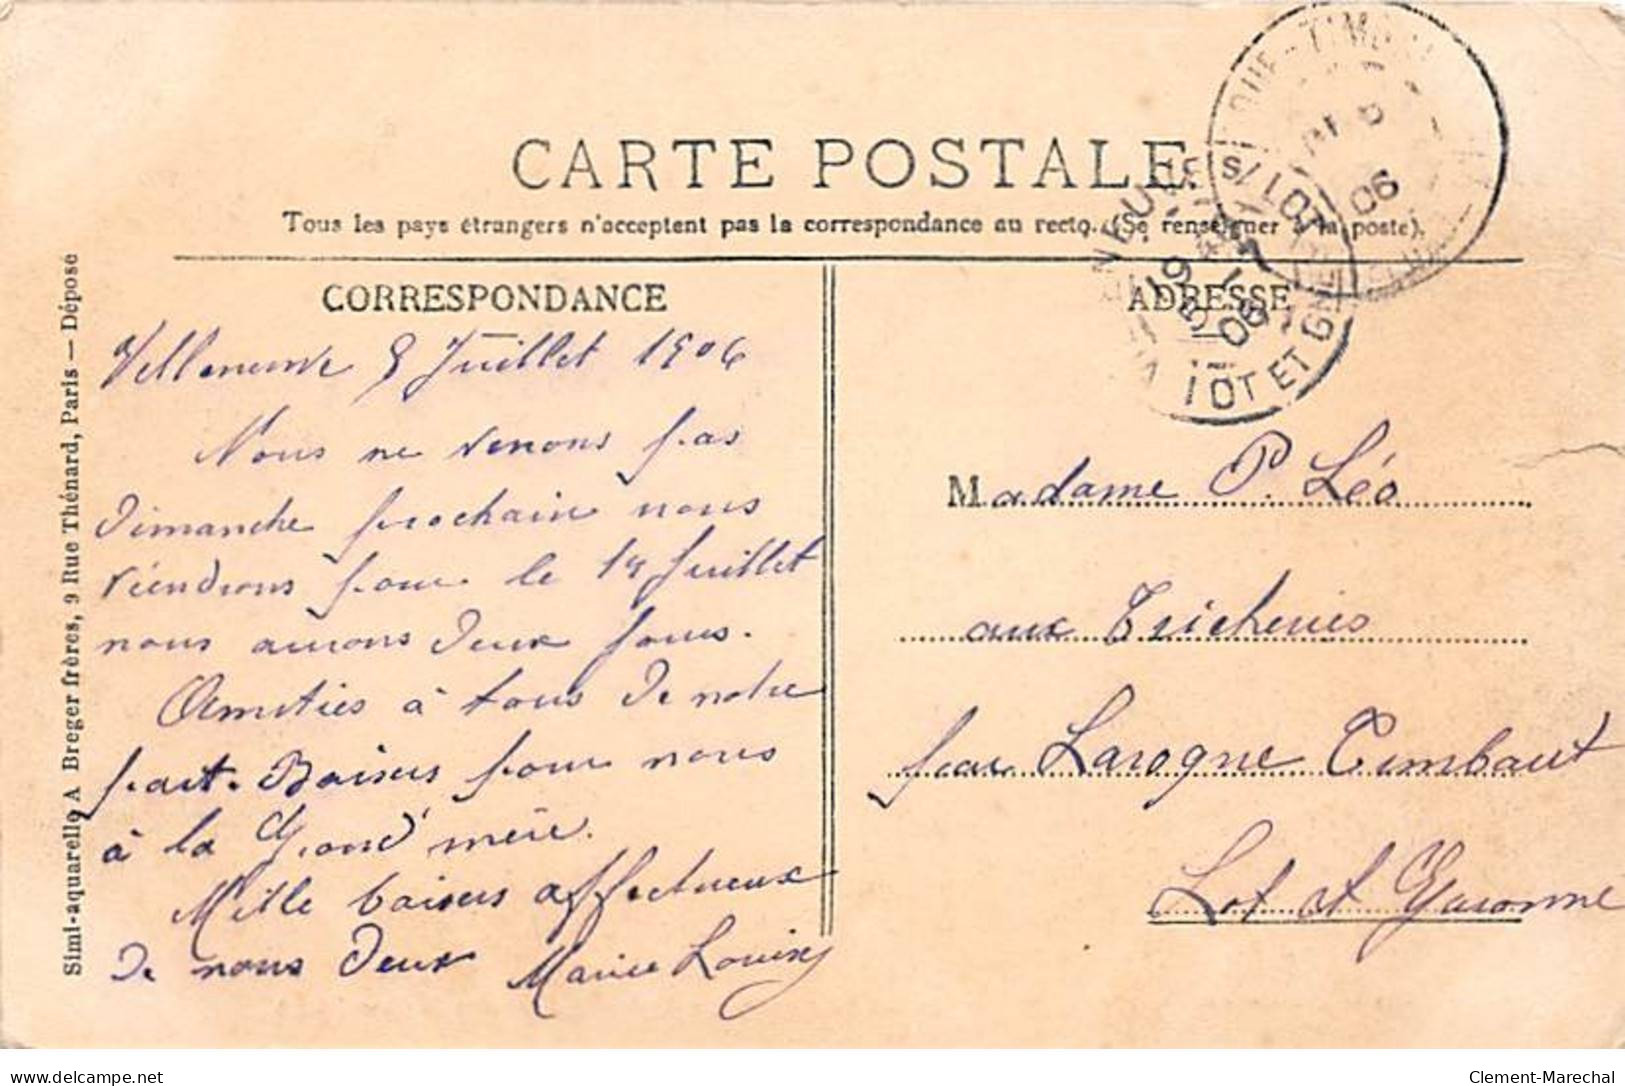 CARTE POSTALE
Tous les pays étrangers n'acceptent pas la correspondance au recto. (Se renseigner à la poste).
CORRESPONDANCE
Villeneuve 8 Juillet 1906
Nous ne venons pas
Dimanche prochain nous
viendrons pour le 14 Juillet
nous aurons deux jours.
Amitiés à tous de notre
part. Baisers pour nous
à la Grand'mère.
Mille baisers affectueux
de nous deux Marie Louise
ADRESSE
Madame P. Léo
aux Tricheries
par Laroque Timbaut
Lot et Garonne
S/ LOT
LOT ET
06
06
Simi-aquarelle A Breger frères, 9 Rue Thénard, Paris — Déposé
delcampe.net
Clement-Marechal